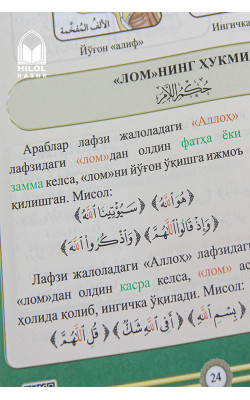 HILOL
NASHR
الألف المفخمة
Йўғон «алиф»
Ингичка
«ЛОМ»НИНГ ҲУКМИ
حكم اللام
Араблар лафзи жалоладаги «Аллоҳ»
лафзидаги «лом»дан олдин фатҳа ёки
замма келса, «лом»ни йўғон ўқишга ижмоъ
қилишган. Мисол:
﴿هُوَ اللَّهُ﴾ ﴿سَيُؤْتِينَا اللَّهُ﴾
﴿وَإِذْ قَالُوا اللَّهُمَّ﴾ ﴿وَاذْكُرُوا اللَّهَ﴾
Лафзи жалоладаги «Аллоҳ» лафзидаг
«лом»дан олдин касра келса, «лом» ас
ҳолида қолиб, ингичка ўқилади. Мисол:
﴿بِسْمِ اللَّهِ﴾ ﴿أَفِي اللَّهِ شَكٌّ﴾ ﴿قُلِ اللَّهُمَّ﴾
24